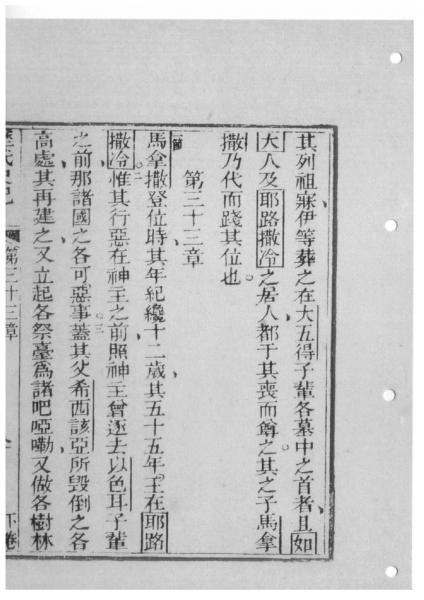 其列祖寐伊等葬之在大五得子輩各墓中之首者且如
大人及耶路撒冷之居人都于其喪而尊之其之子馬拿
撒乃代而踐其位也
第三十三章
一節
馬拿撒登位時其年紀纔十二歲其五十五年王在耶路
撒冷二惟其行惡在神主之前照神主曾逐去以色耳子輩
之前那諸國之各可惡事三蓋其父希西該亞所毀倒之各
高處其再建之又立起各祭臺爲諸吧啞嘞又做各樹林
第三十三章 下卷